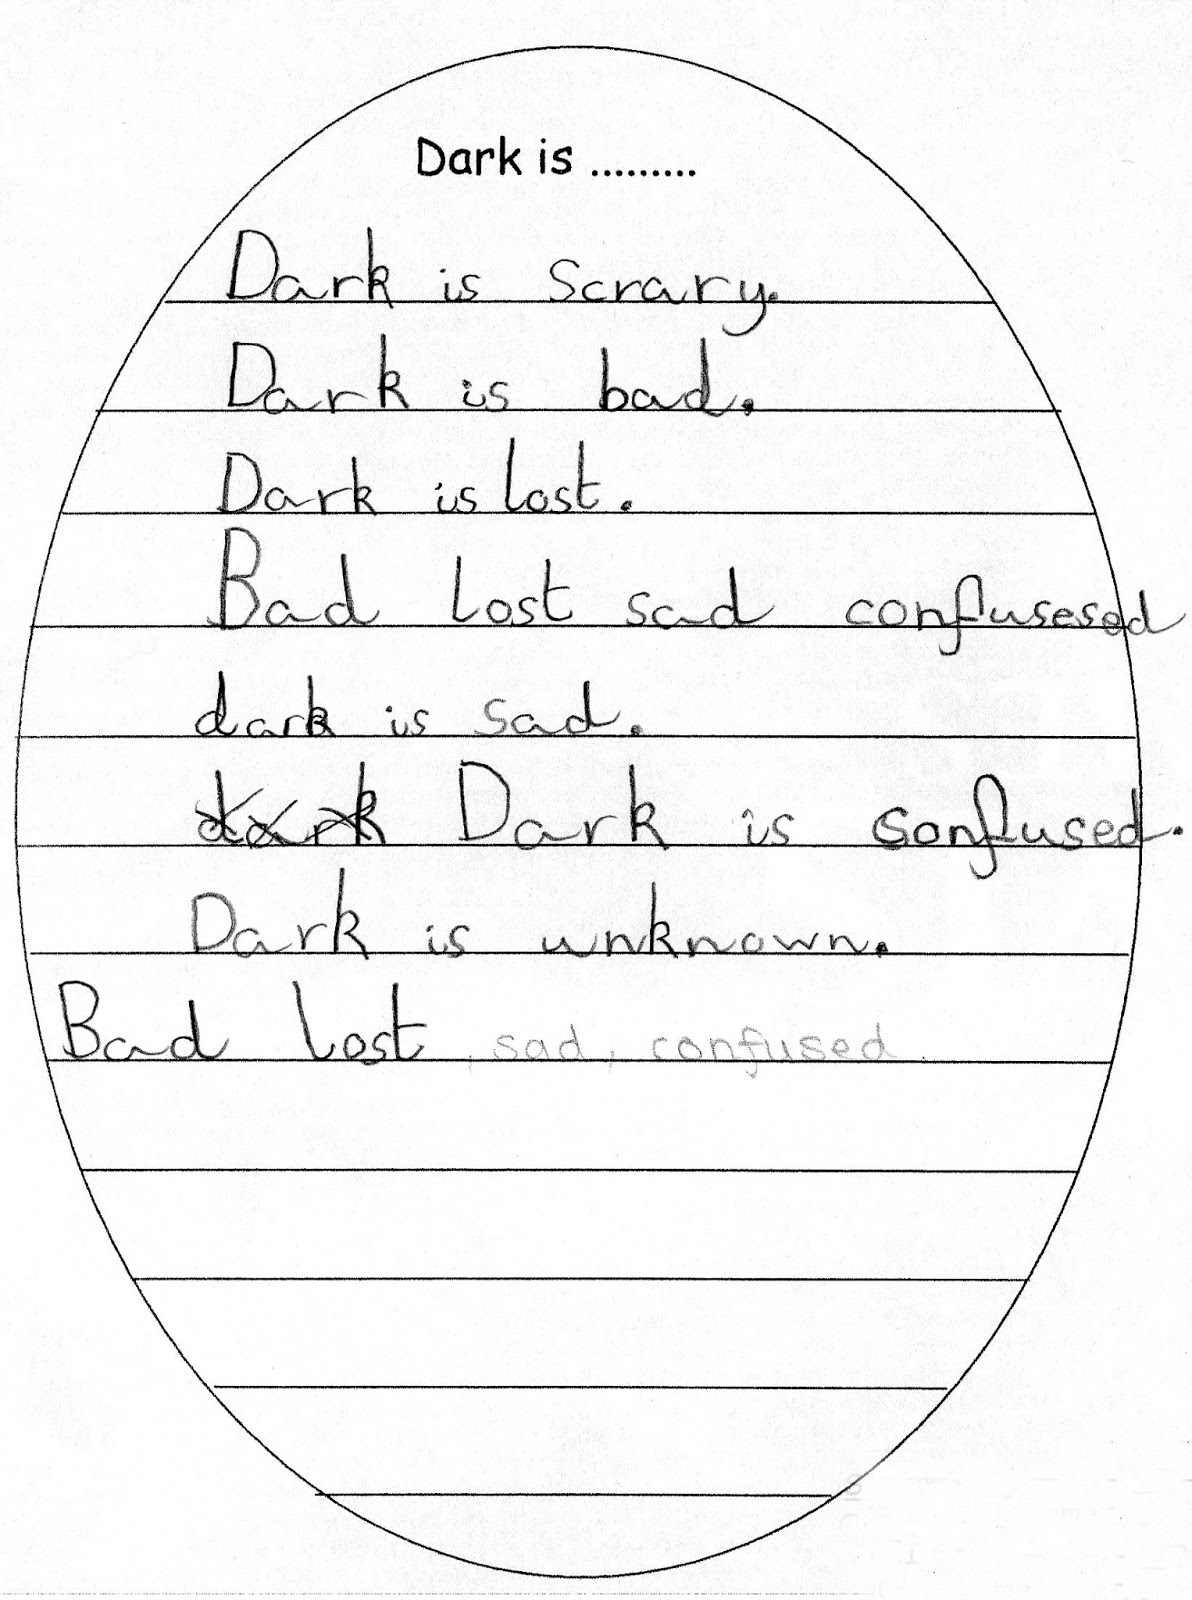 Dark is .........
Dark is scrary.
Dark is bad.
Dark is lost.
Bad lost sad confusesed
dark is sad.
dark Dark is sonfused.
Dark is unknown.
Bad lost, sad, confused.